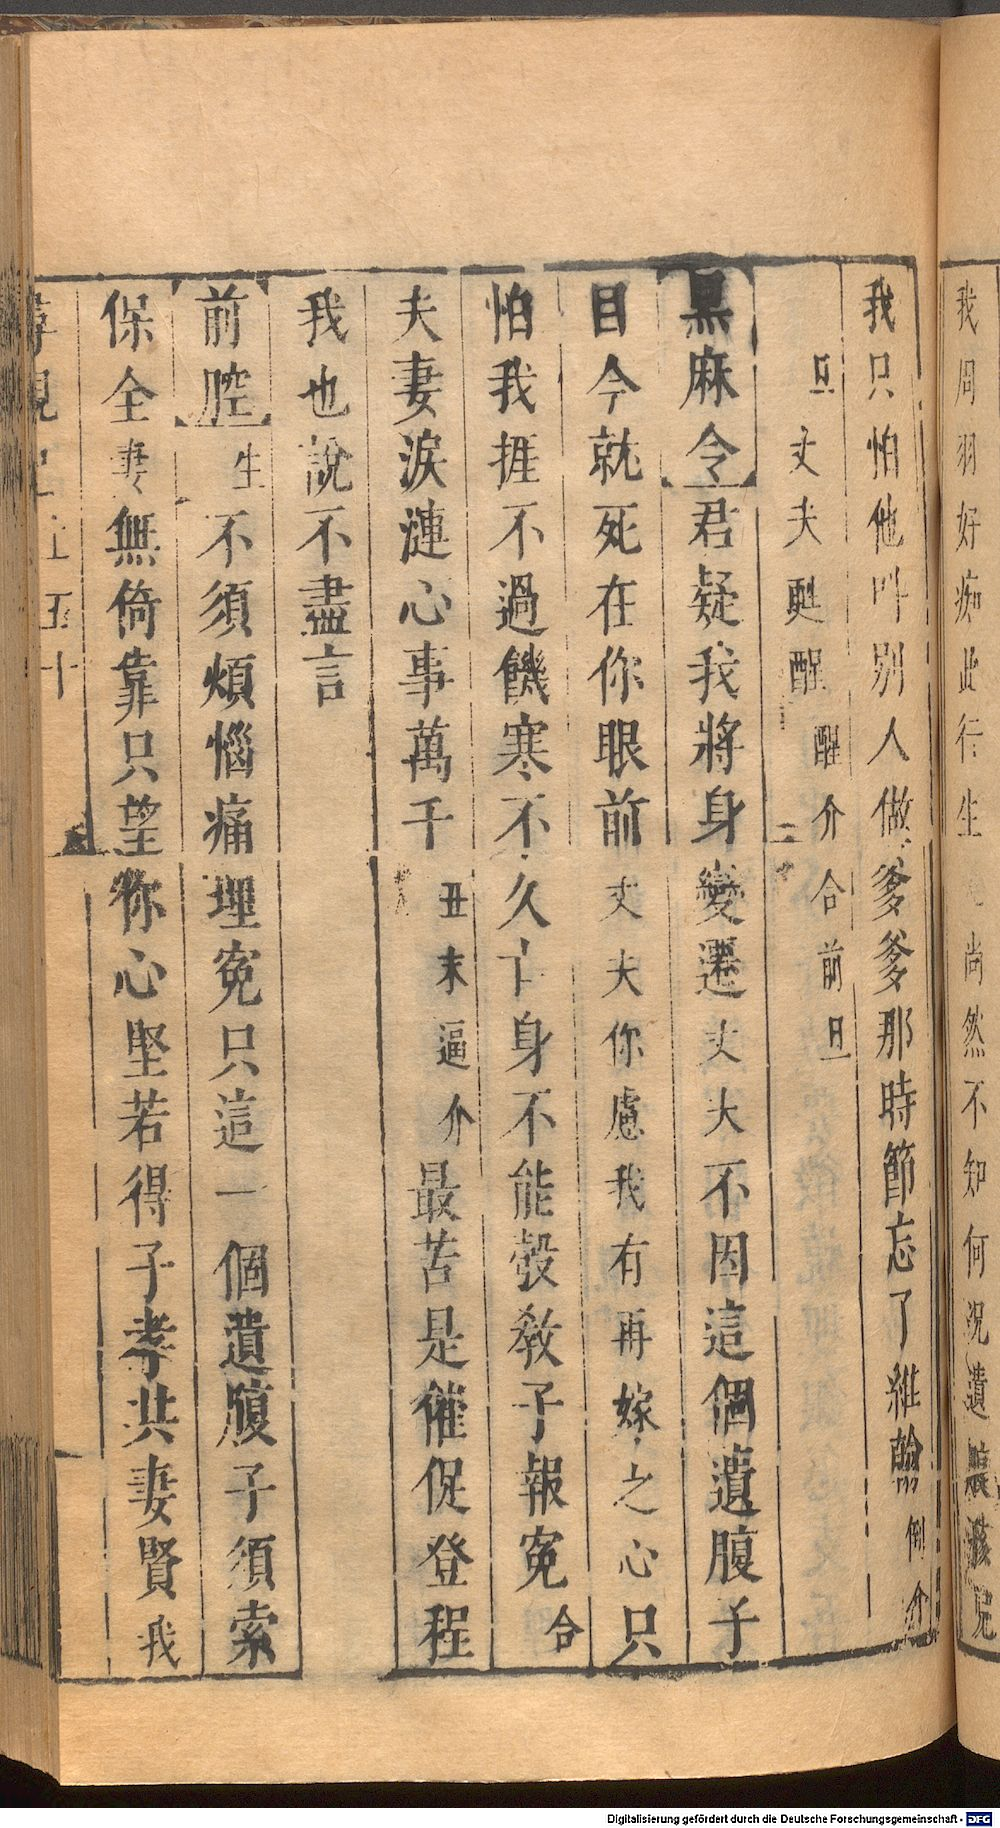 我周羽好痴此行生尚然不知何况遺
我只怕他叫别人做爹爹那時節忘了維翰倒介
旦丈夫甦醒醒介合前旦
黒麻令君疑我將身變遷丈夫不因這個遺腹子
目今就死在你眼前丈夫你慮我有再嫁之心只
怕我捱不過饑寒不久亡身不能彀教子報寃合
夫妻淚漣心事萬千丑末逼介最苦是催促登程
我也說不盡言
前腔生不須煩惱痛埋寃只這一個遺腹子須索
保全妻無倚靠只望你心堅若得子孝共妻賢我
尋親記上五十
Digitalisierung gefördert durch die Deutsche Forschungsgemeinschaft - DFG